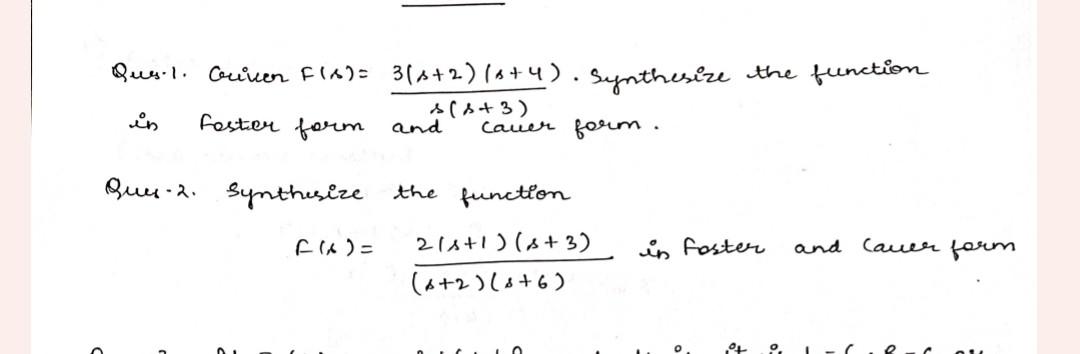 Ques.1. Given F(s) = 3(s+2)(s+4) . Synthesize the function
s(s+3)
in foster form and cauer form .
Ques-2. Synthesize the function
F(s) = 2(s+1)(s+3) in foster and Cauer form
(s+2)(s+6) .